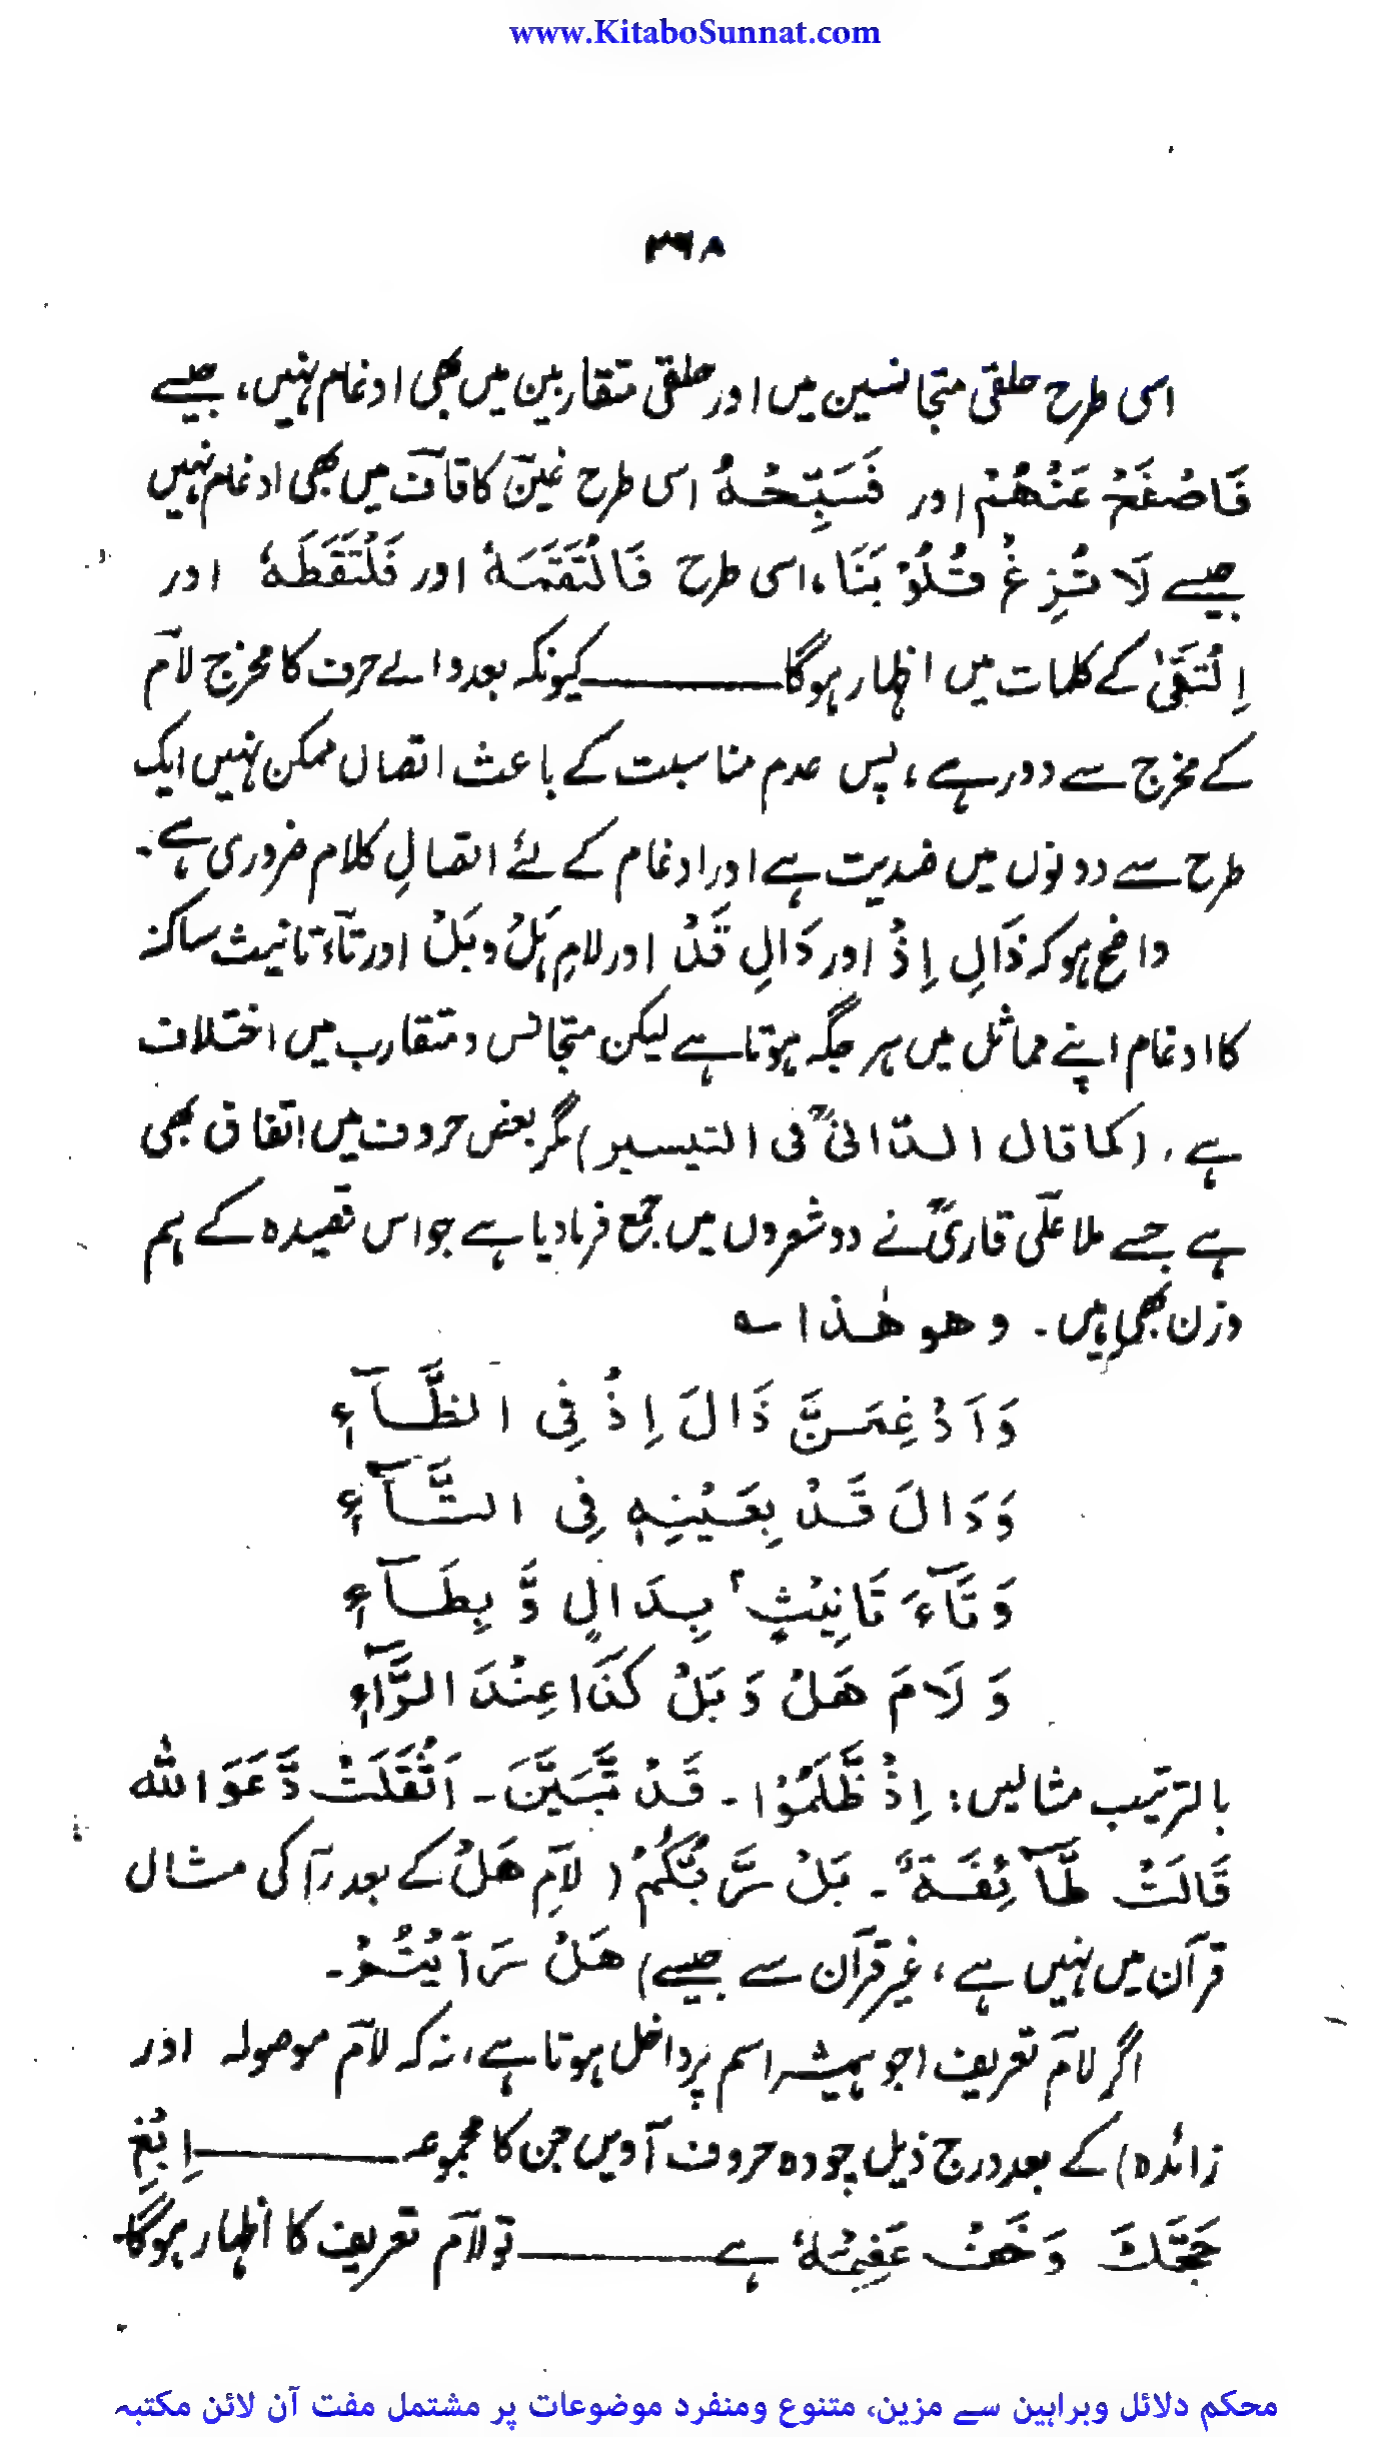 www.KitaboSunnat.com
۳۶۸
اسی طرح حلقی متجانسین میں اور حلقی متقاربین میں بھی ادغام نہیں، جیسے
فَاصْفَحْ عَنْهُمْ اور فَسَبِّحْهُ اسی طرح غین کا قاف میں بھی ادغام نہیں
جیسے لَا تُزِغْ قُلُوْبَنَا، اسی طرح فَالْتَقَمَهُ اور فَلْتَقَطَهٗ اور
اِلْتَقَىٰ کے کلمات میں اظہار ہوگا ــــــــ کیونکہ بعد والے حرف کا مخرج لآم
کے مخرج سے دور ہے، پس عدم مناسبت کے باعث اتصال ممکن نہیں ایک
طرح سے دونوں میں ضدیت ہے اور ادغام کے لئے اتصالِ کلام ضروری ہے۔
واضح ہو کہ ذَالِ اِذْ اور دَالِ قَدْ اور لامِ ہَلْ و بَلْ اور تآء تانیث ساکنہ
کا ادغام اپنے مماثل میں ہر جگہ ہوتا ہے لیکن متجانس و متقارب میں اختلاف
ہے، (کما قال الدّانیؒ فی التیسیر) مگر بعض حروف میں اتفاق بھی
ہے جسے ملا علی قاریؒ نے دو شعروں میں جمع فرما دیا ہے جو اس قصیدہ کے ہم
وزن بھی ہیں۔ وهو هٰذا ؎
وَاَدْغِمَنَّ ذَالَ اِذْ فِی الظَّآءِ
وَدَالَ قَدْ بِعَيْنِهٖ فِی التَّآءِ
وَتَآءَ تَانِيْثٍ بِدَالٍ وَّ بِطَآءِ
وَ لَامَ هَلْ وَ بَلْ كَذَا عِنْدَ الرَّآءِ
بالترتیب مثالیں: اِذْ ظَّلَمُوْا - قَدْ تَّبَيَّنَ - اَثْقَلَتْ دَّعَوَا اللّٰه
قَالَتْ طَّآئِفَةٌ - بَلْ رَّبُّكُمْ (لآمِ هَلْ کے بعد رآ کی مثال
قرآن میں نہیں ہے، غیر قرآن سے جیسے) هَلْ رَاَيْتُمْ۔
اگر لآم تعریف (جو ہمیشہ اسم پر داخل ہوتا ہے، نہ کہ لآم موصولہ اور
زائدہ) کے بعد درج ذیل چودہ حروف آویں جن کا مجموعہ ــــــــ اِبْغِ
حَجَّكَ وَخَفْ عَقِيْمَهٗ ہے ــــــــ تو لآم تعریف کا اظہار ہوگا
محکم دلائل وبراہین سے مزین، متنوع ومنفرد موضوعات پر مشتمل مفت آن لائن مکتبہ